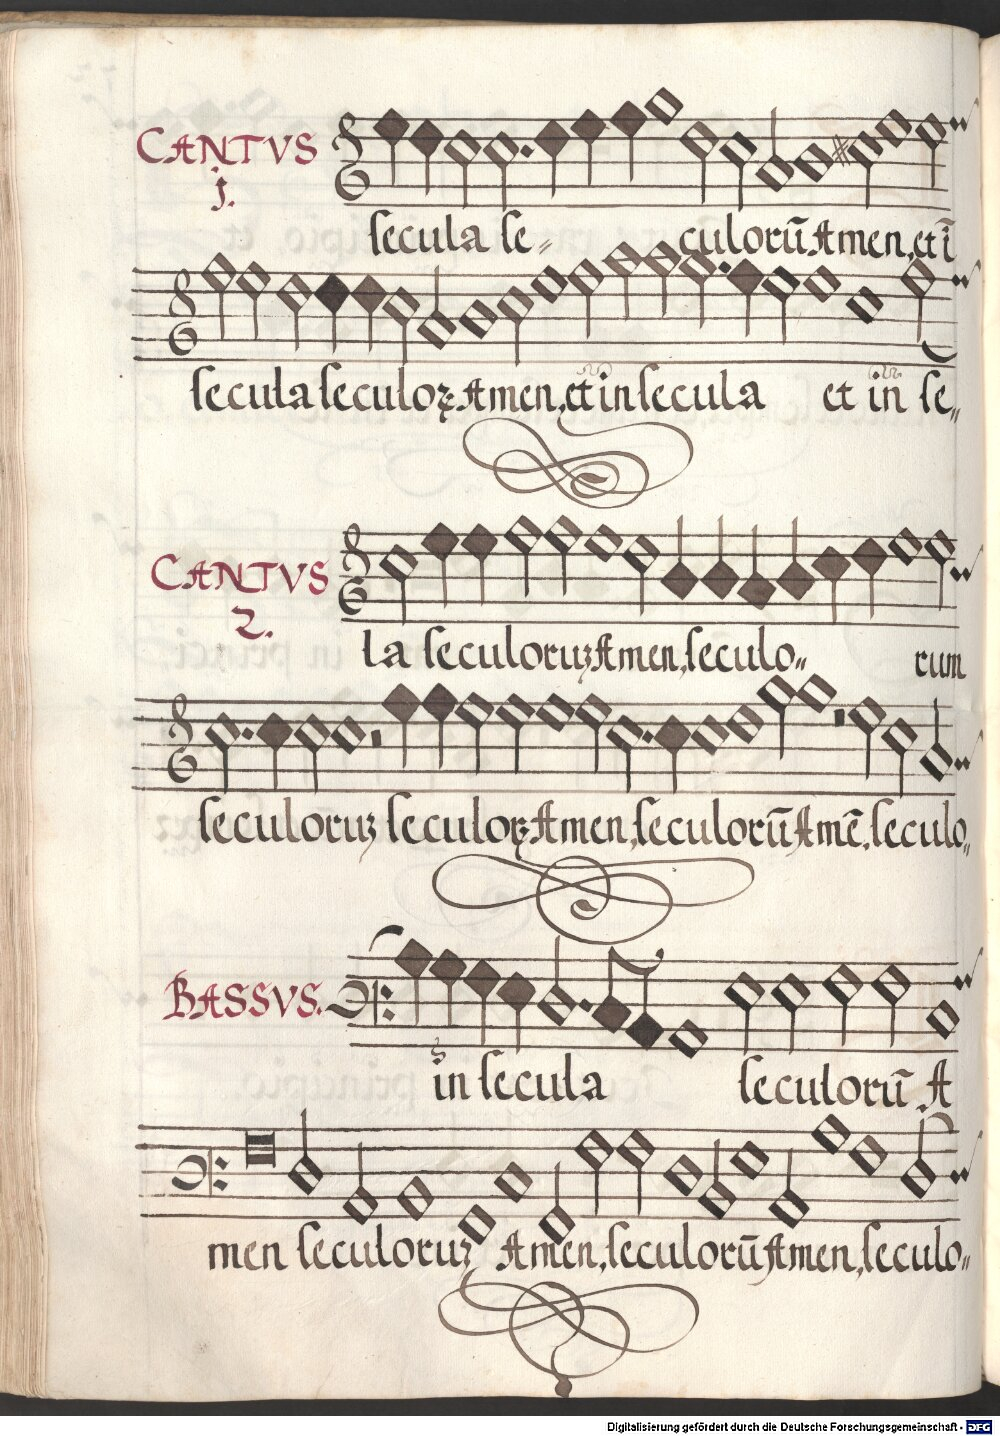 CANTVS
j.
secula se˶ culorū Amen, et ī
secula seculoꝝ Amen, et in secula et in se˶
CANTVS
2.
la seculoruꝫ Amen, seculo˶ rum
seculoruꝫ seculoꝝ Amen, seculorū Amē, seculo˶
BASSVS.
in secula seculorū A
men seculoruꝫ Amen, seculorū Amen, seculo˶
Digitalisierung gefördert durch die Deutsche Forschungsgemeinschaft - DFG